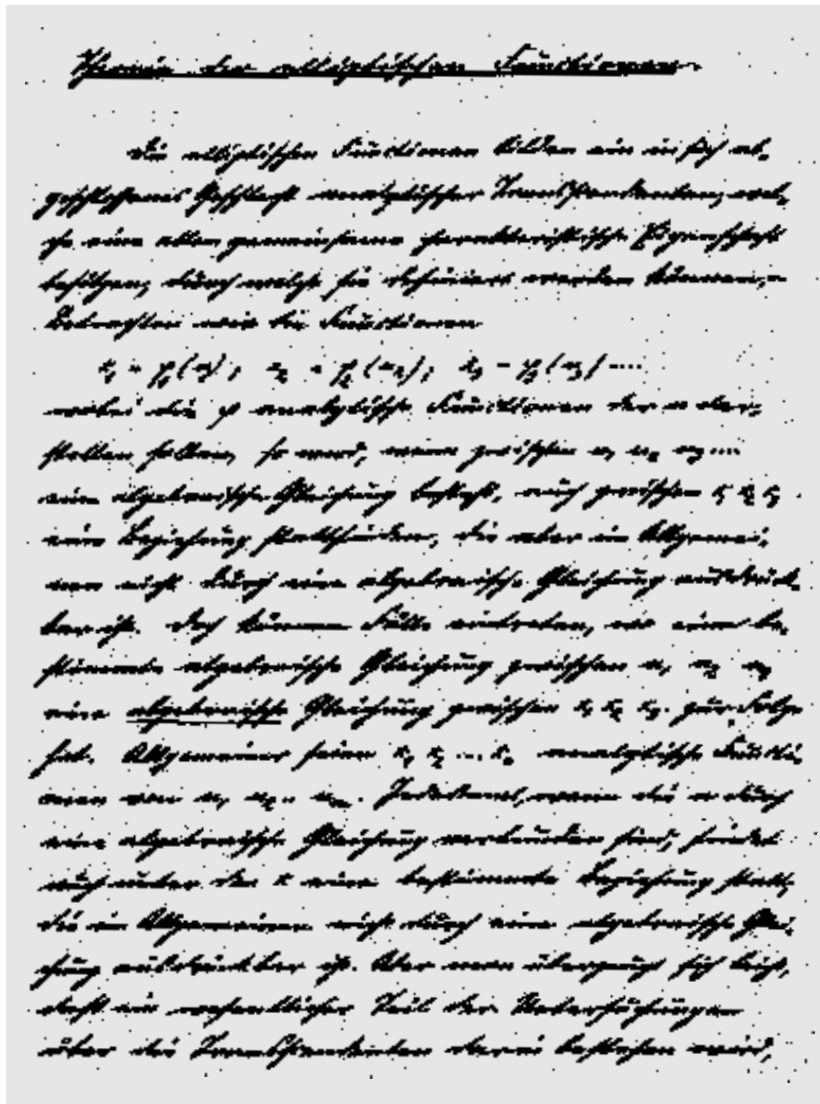 Theorie der elliptischen Functionen.
Die elliptischen Functionen bilden ein in sich ab-
geschlossenes Geschlecht analytischer Transscendenten, wel-
che eine allen gemeinsame charakteristische Eigenschaft
besitzen, durch welche sie definiert werden können.
Betrachten wir die Functionen
x₁ = φ₁(u₁); x₂ = φ₂(u₂); x₃ = φ₃(u₃) ....
wobei die φ analytische Functionen der u dar-
stellen sollen, so wird, wenn zwischen u₁ u₂ u₃ ....
eine algebraische Gleichung besteht, auch zwischen x₁ x₂ x₃
eine Beziehung stattfinden, die aber im Allgemei-
nen nicht durch eine algebraische Gleichung ausdrück-
bar ist. Doch können Fälle eintreten, wo eine be-
stimmte algebraische Gleichung zwischen u₁ u₂ u₃
eine algebraische Gleichung zwischen x₁ x₂ x₃ zur Folge
hat. Allgemeiner seien x₁ x₂ ... xₙ analytische Functi-
onen von u₁ u₂ .. uₘ. Jedesmal, wenn die u durch
eine algebraische Gleichung verbunden sind, findet
auch unter den x eine bestimmte Beziehung statt,
die im Allgemeinen nicht durch eine algebraische Glei-
chung ausdrückbar ist. Aber man überzeugt sich leicht,
daß ein wesentlicher Teil der Untersuchungen
über die Transscendenten darin bestehen wird,